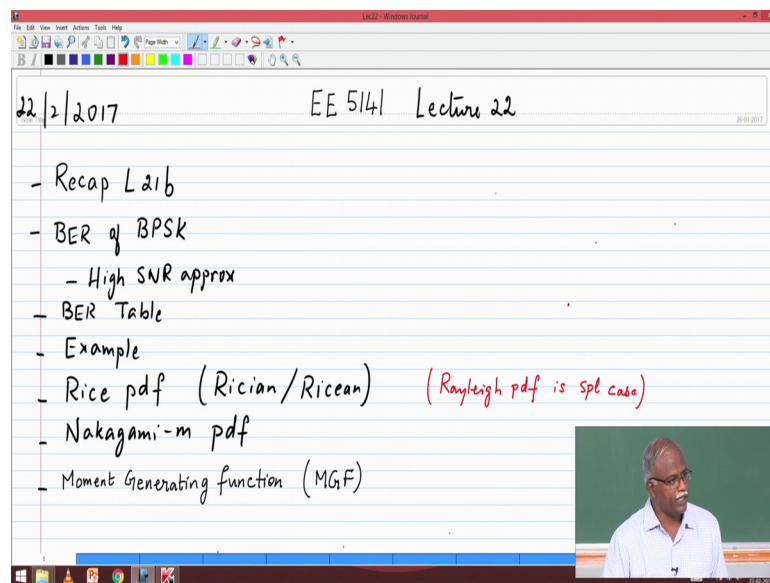 Lec22 - Windows Journal
File Edit View Insert Actions Tools Help
Page Width
B I
22/2/2017 EE 5141 Lecture 22
Note Title 26-01-2017
- Recap L21b
- BER of BPSK
- High SNR approx
- BER Table
- Example
- Rice pdf (Rician/Ricean) (Rayleigh pdf is spl case)
- Nakagami-m pdf
- Moment Generating function (MGF)
1